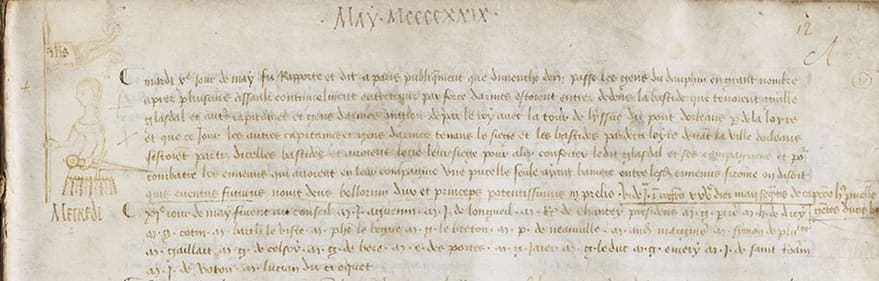 May Mccccxxix
12
Mardi xe jour de may fu rapporté et dit a paris publiquement que dimenche dern. passé les gens du dauphin en grant nombre
apres pluseurs assaulx continuelment entretenuz par force darmes estoient entrez dedens la bastide que tenoient Guille
Glasdal et autres capitaines et gens darmes anglois de par le roy avec la tour de lyssue du pont dorleans par dela loyre
et que ce jour les autres capitaines et gens darmes tenans le siege et les bastides par deca loyre devant la ville dorleans
sestoient partiz dicelles bastides et avoient levé leur siege pour aler conforter ledit Glasdal et ses compaignons et pour
combatre les ennemis qui avoient en leur compaignie une pucelle seule ayant baniere entre lesdis ennemis si comme on disoit
quis eventus futurus novit deus bellorum dux et princeps potentissimus in prelio
Mercredi
xje jour de may furent au conseil m. j. aguenin m. j. de longueil m. de president m. g.
m. g. cotin m. barth. le viste m. ph. le begue m. g. le breton m. p. de m. m. symon de
m. gaillart m. g. de celsoy m. g. de m. e. des portes m. g. m. g. le duc m. g. m. j. de saint
m. j. de m. lucian du croquet